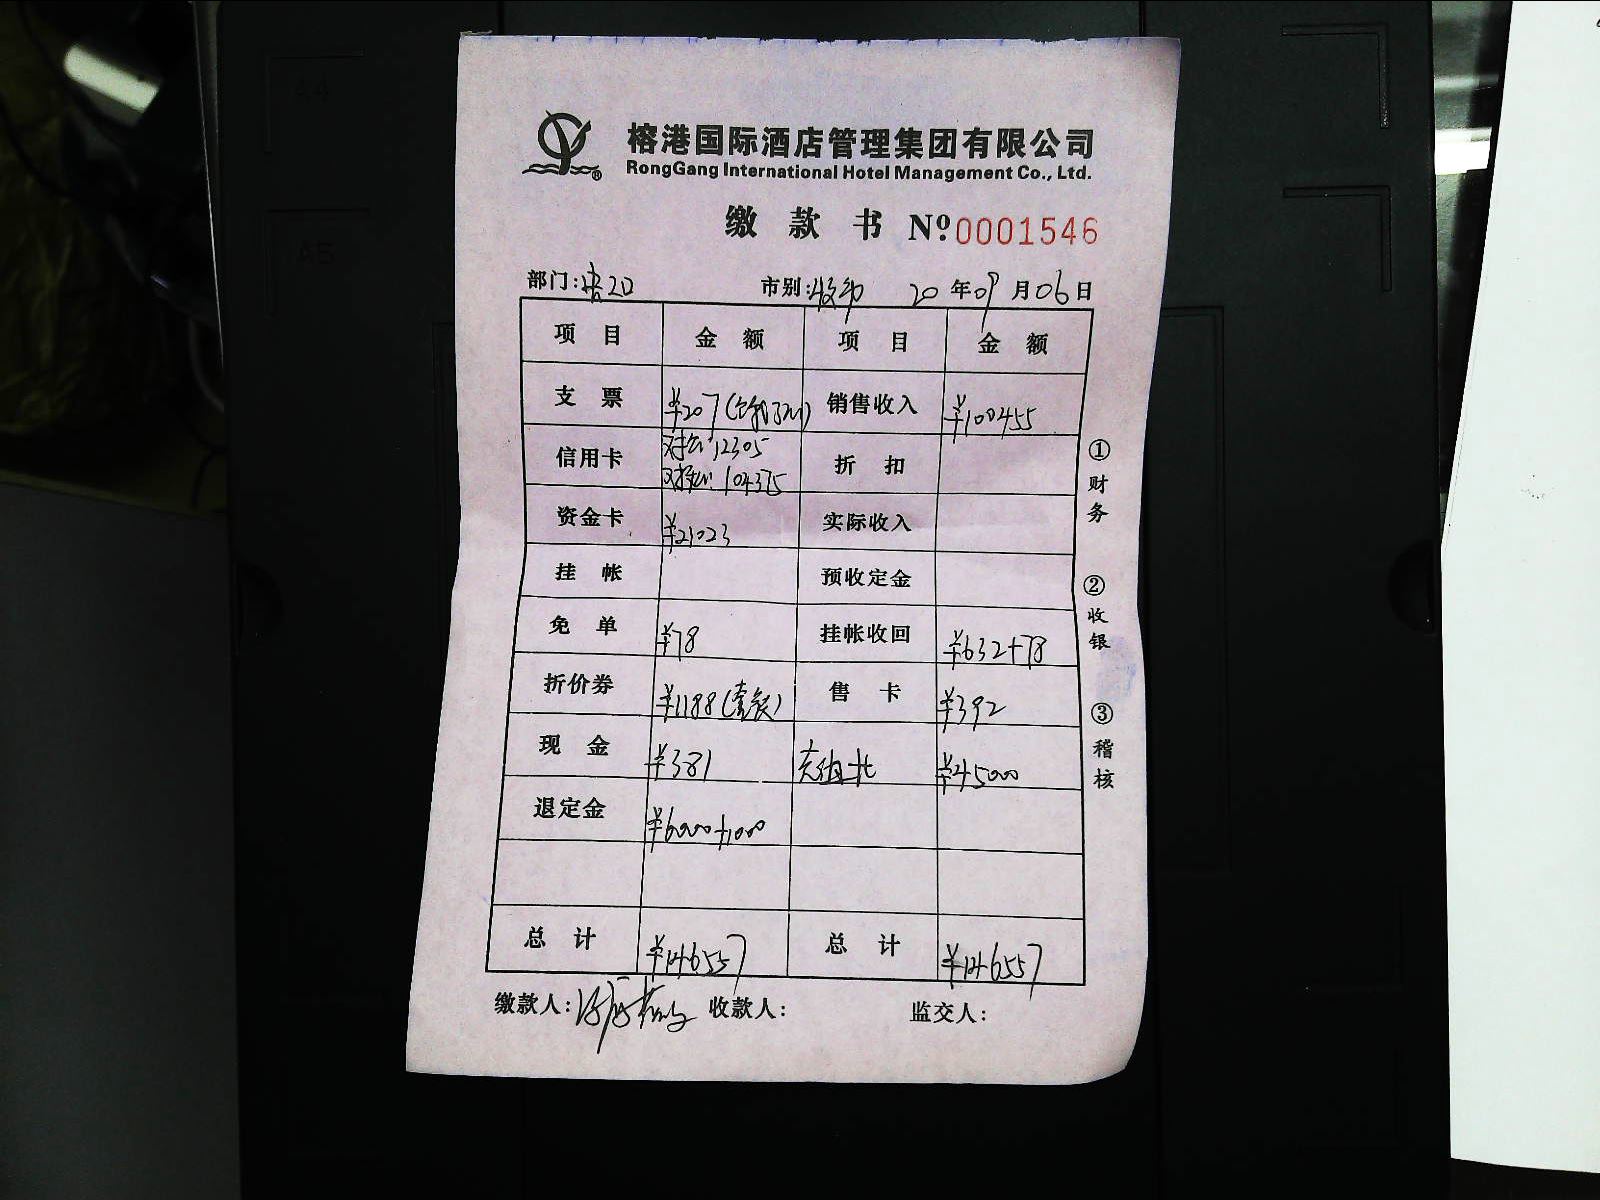 A4
A5
榕港国际酒店管理集团有限公司
RongGang International Hotel Management Co., Ltd.
缴款书 Nº 0001546
部门: 市别: 20年09月06日
项目 金额 项目 金额
支票 ¥207 销售收入 ¥100455
信用卡 对公: 12305 折扣
104375
资金卡 ¥21023 实际收入
挂帐 预收定金
免单 ¥78 挂帐收回 ¥632+78
折价券 ¥1188(套餐) 售卡 ¥392
现金 ¥381 ¥45000
退定金 ¥6000+1000
总计 ¥146557 总计 ¥146557
缴款人: 收款人: 监交人:
①财务
②收银
③稽核